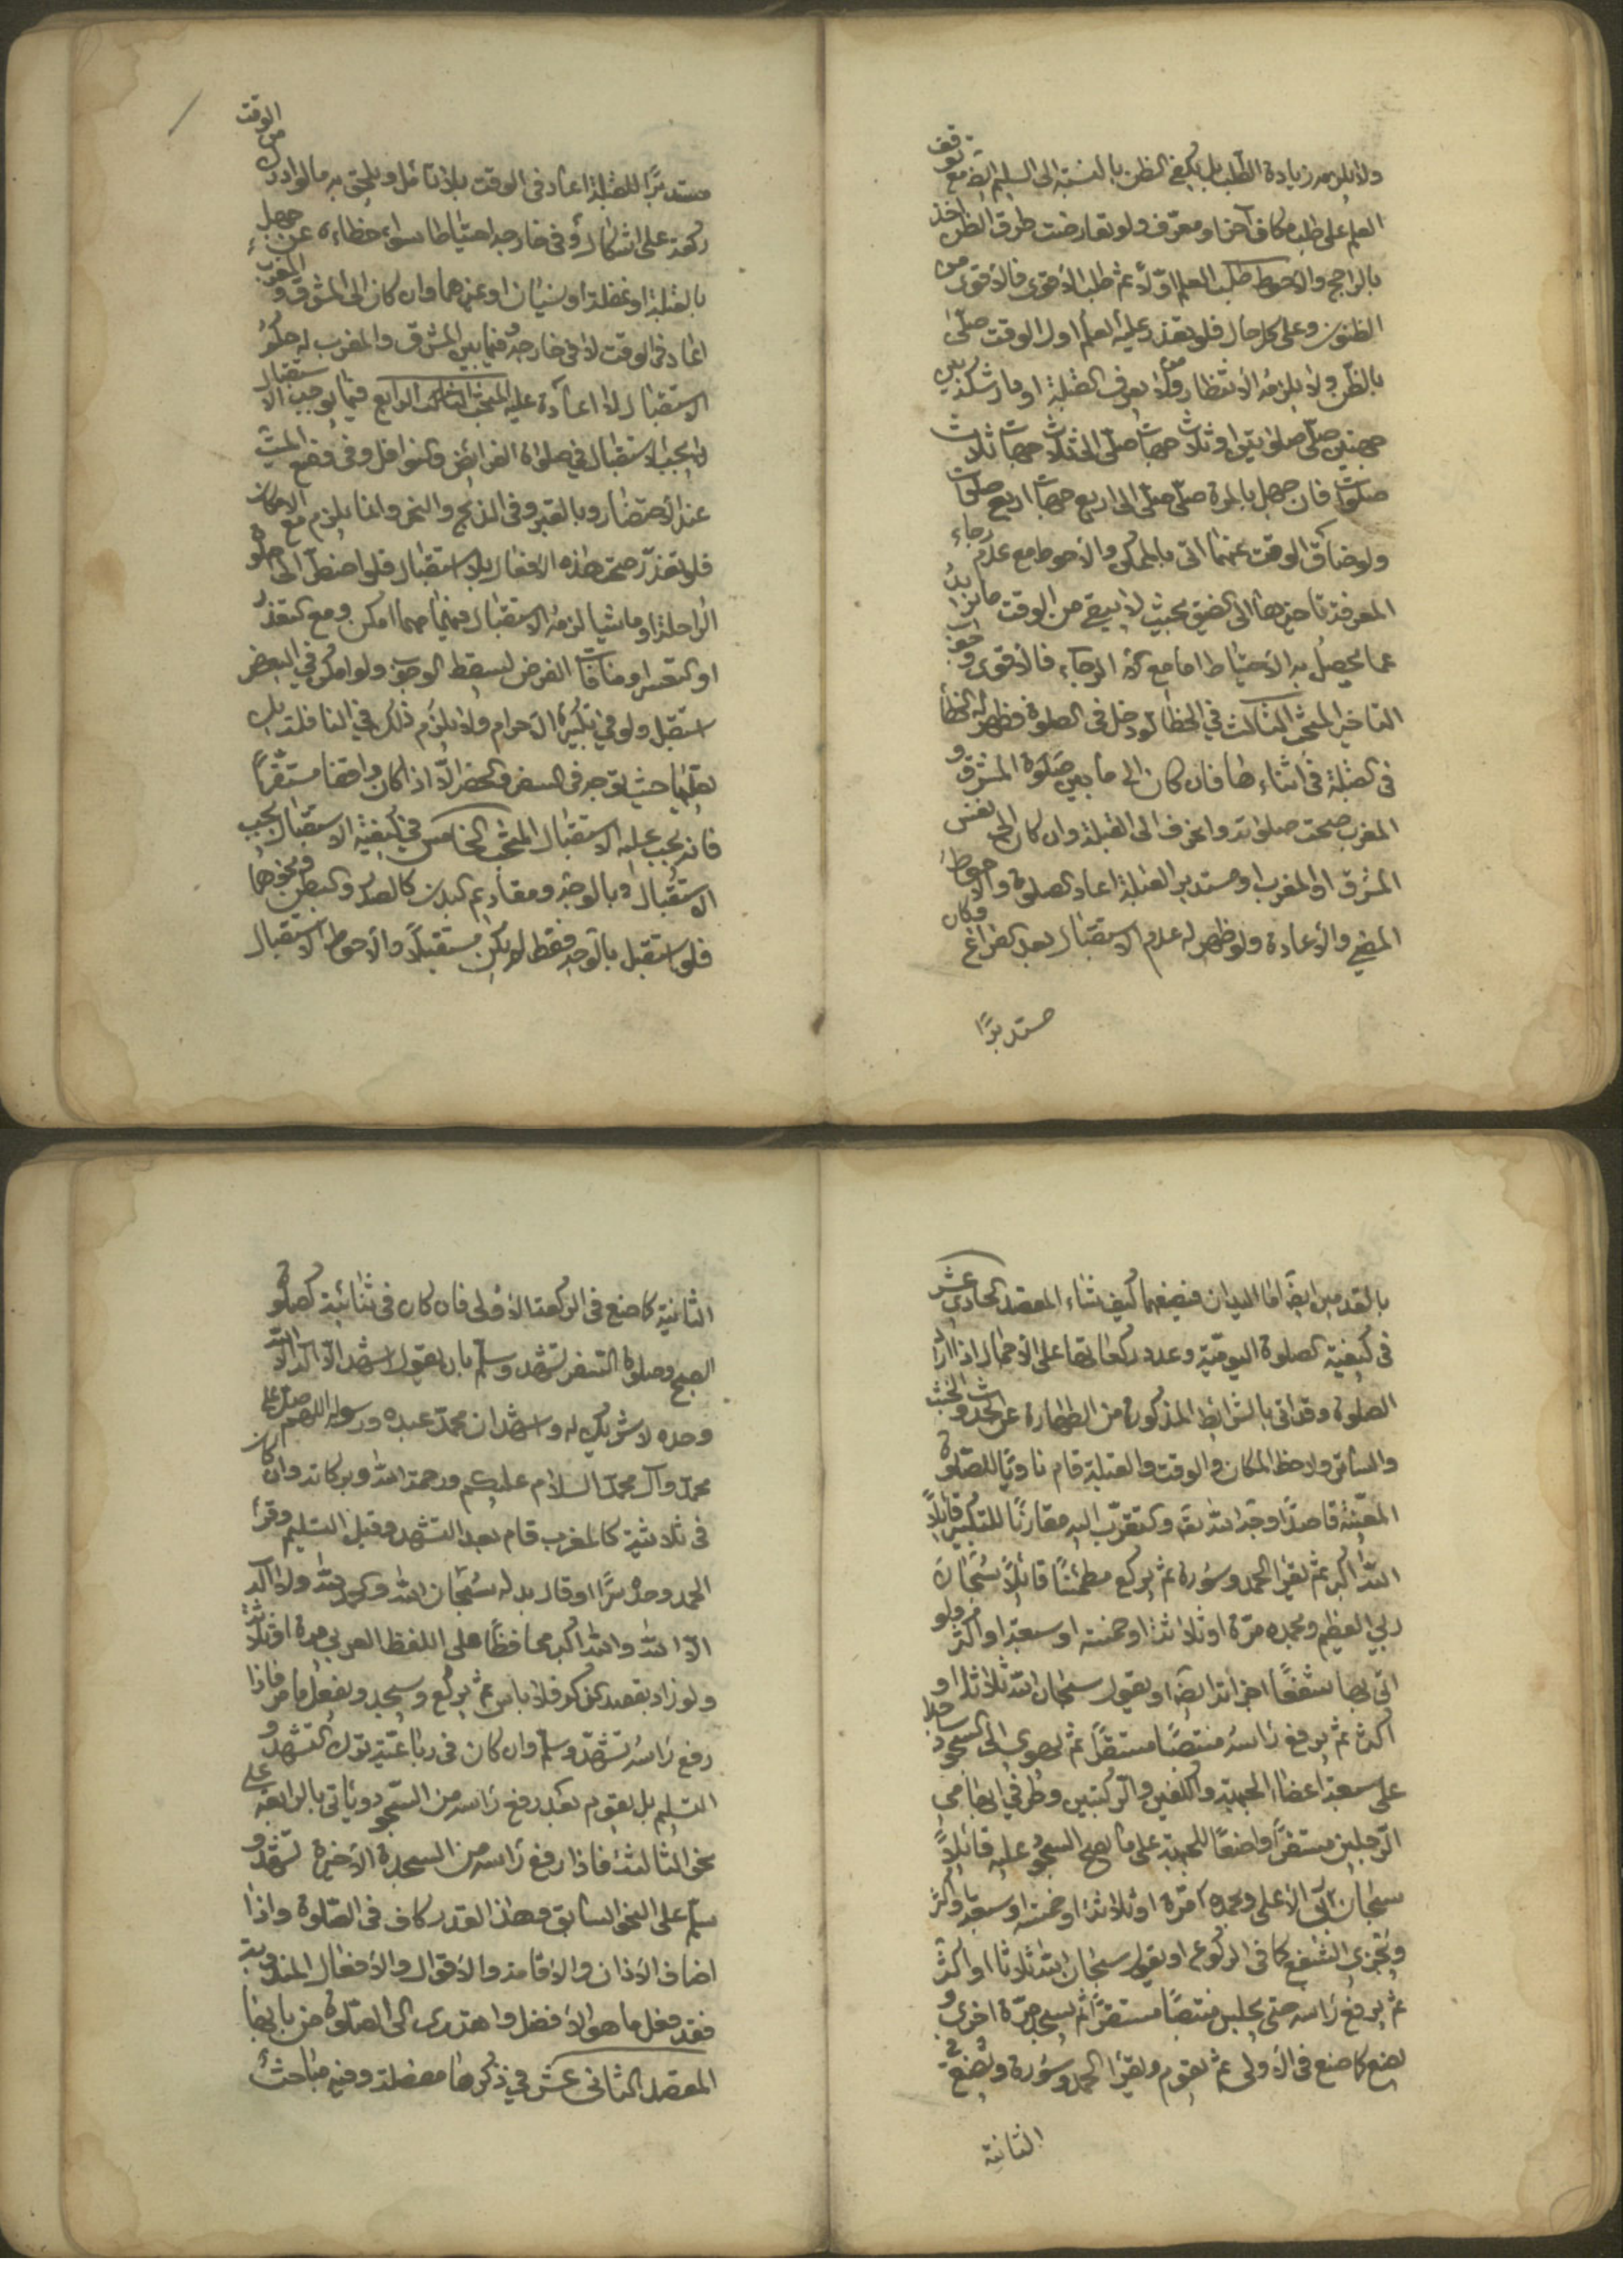 ولا يلزمه زيادة الطلب بل يكفي الظن بالنسبة الى السليم ايضا مع توقف
العلم على طلب مكان آخر او معرّف ولو تعارضت طرق الظن اخذ
بالراجح والاحوط طلب العلم اوّلا ثم طلب الاقوى فالاقوى من
الظنون وعلى كل حال فلو تعذر عليه العلم اول الوقت صلّى
بالظن ولا يلزمه الانتظار ومن لا يعرف القبلة او مارت بين
جهتين صلّى صلوتين او ثلاث جهات صلّى الى ثلاث جهات ثلاث
صلوات فان جهل بالمرة صلّى الى اربع جهات اربع صلوات
ولو ضاق الوقت عنها اتى بالممكن والاحوط مع عدم رجاء
المعرفة تاخيرها الى الضيق بحيث لا يبقى من الوقت ما يزيد
عما يحصل به الاحتياط اما مع الرجاء فالاقوى وجوب
التاخير المبحث الثالث في الخطا لو دخل في الصلوة فظهر له الخطأ
في القبلة في اثناءها فان كان الى ما بين المشرق و
المغرب صحت صلوته وانحرف الى القبلة وان كان الى نفس
المشرق او المغرب او مستدبر القبلة اعاد الصلوة والاحوط
المضي والاعادة ولو ظهر له عدم الاستقبال بعد الفراغ وكان
مستدبرًا
مستدبرًا للقبلة اعاد في الوقت بلا تامل ويلحق به ما لو ادرك من الوقت
ركعة على اشكال وفي خارجه احتياطا سواء خطاءه عن جهل
بالقبلة او غفلة او نسيان او غيرهما وان كان الى المشرق والمغرب
اعاد في الوقت لا في خارجه وفيما بين المشرق والمغرب له حكم
الاستقبال لا اعادة عليه المبحث الرابع فيما يوجب الاستقبال
يجب الاستقبال في صلوة الفرائض والنوافل وفي وضع الميت
عند الاحتضار وبالقبر وفي الذبح والنحر وانما يلزم مع الامكان
فلو تعذر صحت هذه الافعال بلا استقبال فلو اضطر الى صلوة
الراحلة او ماشيا لزمه الاستقبال فيهما مهما امكن ومع التعذر
او التعسر او منافات الغرض يسقط الوجوب ولو امكن في البعض
استقبل ولو في تكبيرة الاحرام ولا يلزم ذلك في النافلة بل
يصلّيها حيث توجه في السفر والحضر الّا اذا كان واقفا مستقرًا
فانه يجب عليه الاستقبال المبحث الخامس في كيفية الاستقبال يجب
الاستقبال بالوجه ومقاديم البدن كالصدر والبطن ونحوهما
فلو استقبل بالوجه فقط لم يكن مستقبلًا والاحوط الاستقبال
بالقدمين ايضا اما اليدان فيضعهما كيف شاء المقصد الحادي عشر
في كيفية الصلوة اليومية وعدد ركعاتها على الاجمال اذا اراد
الصلوة وقد اتى بالشرائط المذكورة من الطهارة عن الحدث والخبث
والساتر ولاحظ المكان والوقت والقبلة قام ناويًا للصلوة
المعيّنة قاصدًا وجه الله تعالى والتقرّب اليه مقارنًا للتكبير قائلًا
الله اكبر ثم يقرا الحمد وسورة ثم يركع مطمئنًا قائلًا سبحان
ربي العظيم وبحمده مرّة او ثلاثة او خمسة او سبعة او اكثر ولو
اتى بها شفعًا اجزأته ايضا او يقول سبحان الله ثلاثا او
اكثر ثم يرفع رأسه منتصبًا مستقرًا ثم يهوى الى السجود ساجدا
على سبعة اعضاء الجبهة والكفين والركبتين وطرفي ابهامي
الرجلين مستقرًا واضعًا للجبهة على ما يصح السجود عليه قائلًا
سبحان ربّي الاعلى وبحمده مرّة او ثلاثة او خمسة او سبعة او اكثر
ويجزي الشفع كما في الركوع او يقول سبحان الله ثلاثا او اكثر
ثم يرفع رأسه حتى يجلس منتصبًا مستقرًا ثم يسجد مرّة اخرى و
يضع كما صنع في الاولى ثم يقوم ويقرأ الحمد وسورة ويصنع في
الثانية
الثانية كما صنع في الركعة الاولى فان كان في ثنائية كصلوة
الصبح وصلوة السفر تشهد وسلّم بان يقول اشهد ان لا اله الا الله
وحده لا شريك له واشهد ان محمدًا عبده ورسوله اللهم صل على
محمد وآل محمد السلام عليكم ورحمة الله وبركاته وان كان
في ثلاثية كالمغرب قام بعد التشهد وقبل التسليم وقرأ
الحمد وحده سرًا او قال بدله سبحان الله والحمد لله ولا اله
الا الله والله اكبر محافظًا على اللفظ العربي مرة او ثلاثة
ولو زاد بقصد الذكر فلا باس ثم يركع ويسجد ويفعل ما مرّ فاذا
رفع رأسه تشهّد وسلّم وان كان في رباعيّة ترك التشهد و
التسليم بل يقوم بعد رفع رأسه من السجود وياتي بالرابعة على
نحو الثالثة فاذا رفع رأسه من السجدة الاخيرة تشهد و
سلّم على النحو السابق وهذا القدر كاف في الصلوة واذا
اضاف الاذان والاقامة والاقوال والافعال المندوبة
فقد فعل ما هو الافضل واهتدى الى الصلوة من بابها
المقصد الثاني عشر في ذكرها مفصلة وفيه مباحث